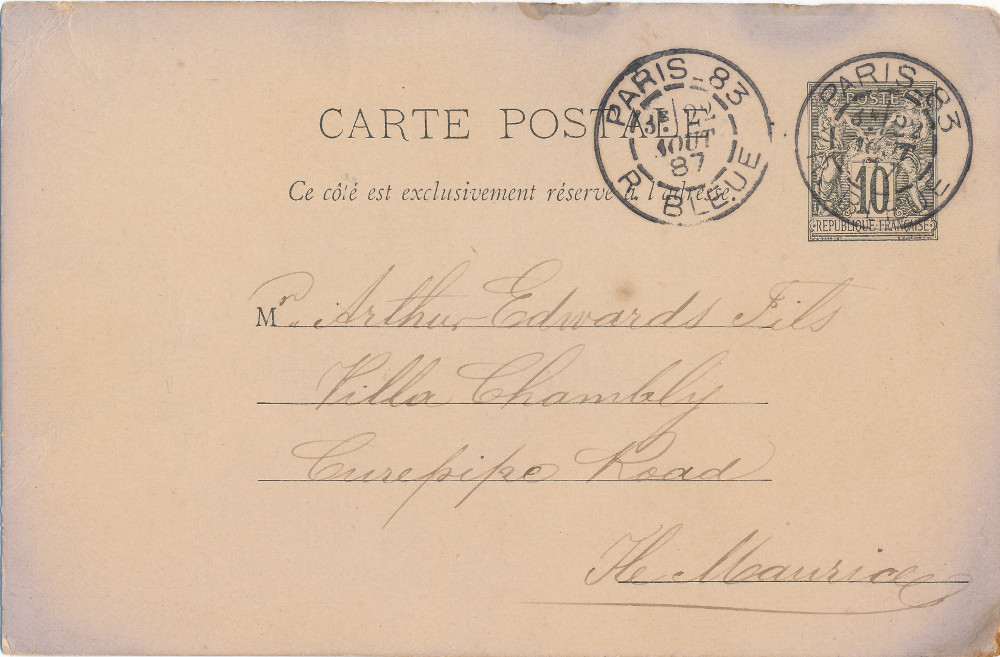 PARIS-83
3E 22
AOUT
87
R. BLEUE
PARIS-83
AOUT
POSTE
10
REPUBLIQUE FRANÇAISE
CARTE POSTALE
Ce côté est exclusivement réservé à l'adresse.
Mr. Arthur Edwards Fils
Villa Chambly
Curepipe Road
Ile Maurice